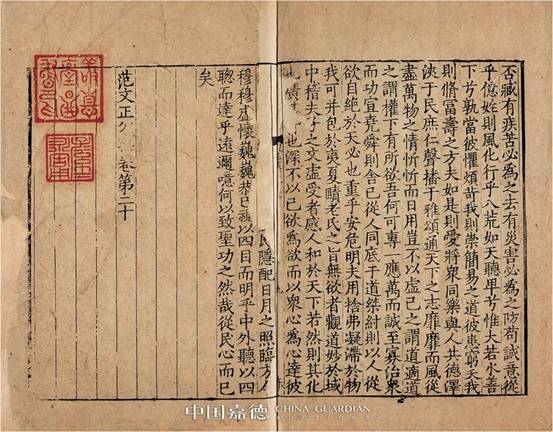 否臧有疾苦必為之去有災害必為之防苟誠意從
乎億姓則風化行乎八荒如天聽卑兮惟大若水善
下兮孰當彼懼煩苛我則崇簡易之道彼患窮夭我
則脩富壽之方夫如是則愛將衆同樂與人共德澤
浹于民庶仁聲播于雅頌通天下之志靡靡而風從
盡萬物之情忻忻而日用豈不以虛已之謂道適道
之謂權下有所欲吾何可專一應萬而誠至寡治衆
而功宣堯舜則舍己從人同底于道桀紂則以人從
欲自絕於天必也重乎安危明夫用捨弗凝滯於物
我可并包於夷夏賾老氏之旨無欲者觀道妙於域
中稽夫子之文虛受者感人和於天下若然則其化
也深不以已欲為欲而以衆心為心達彼
民隱配日月之照臨方今
穆穆虛懷巍巍恭已視以四目而明乎中外聽以四
聰而達乎遠邇噫何以致聖功之然哉從民心而已
矣
范文正公卷第二十
中国嘉德 CHINA GUARDIAN